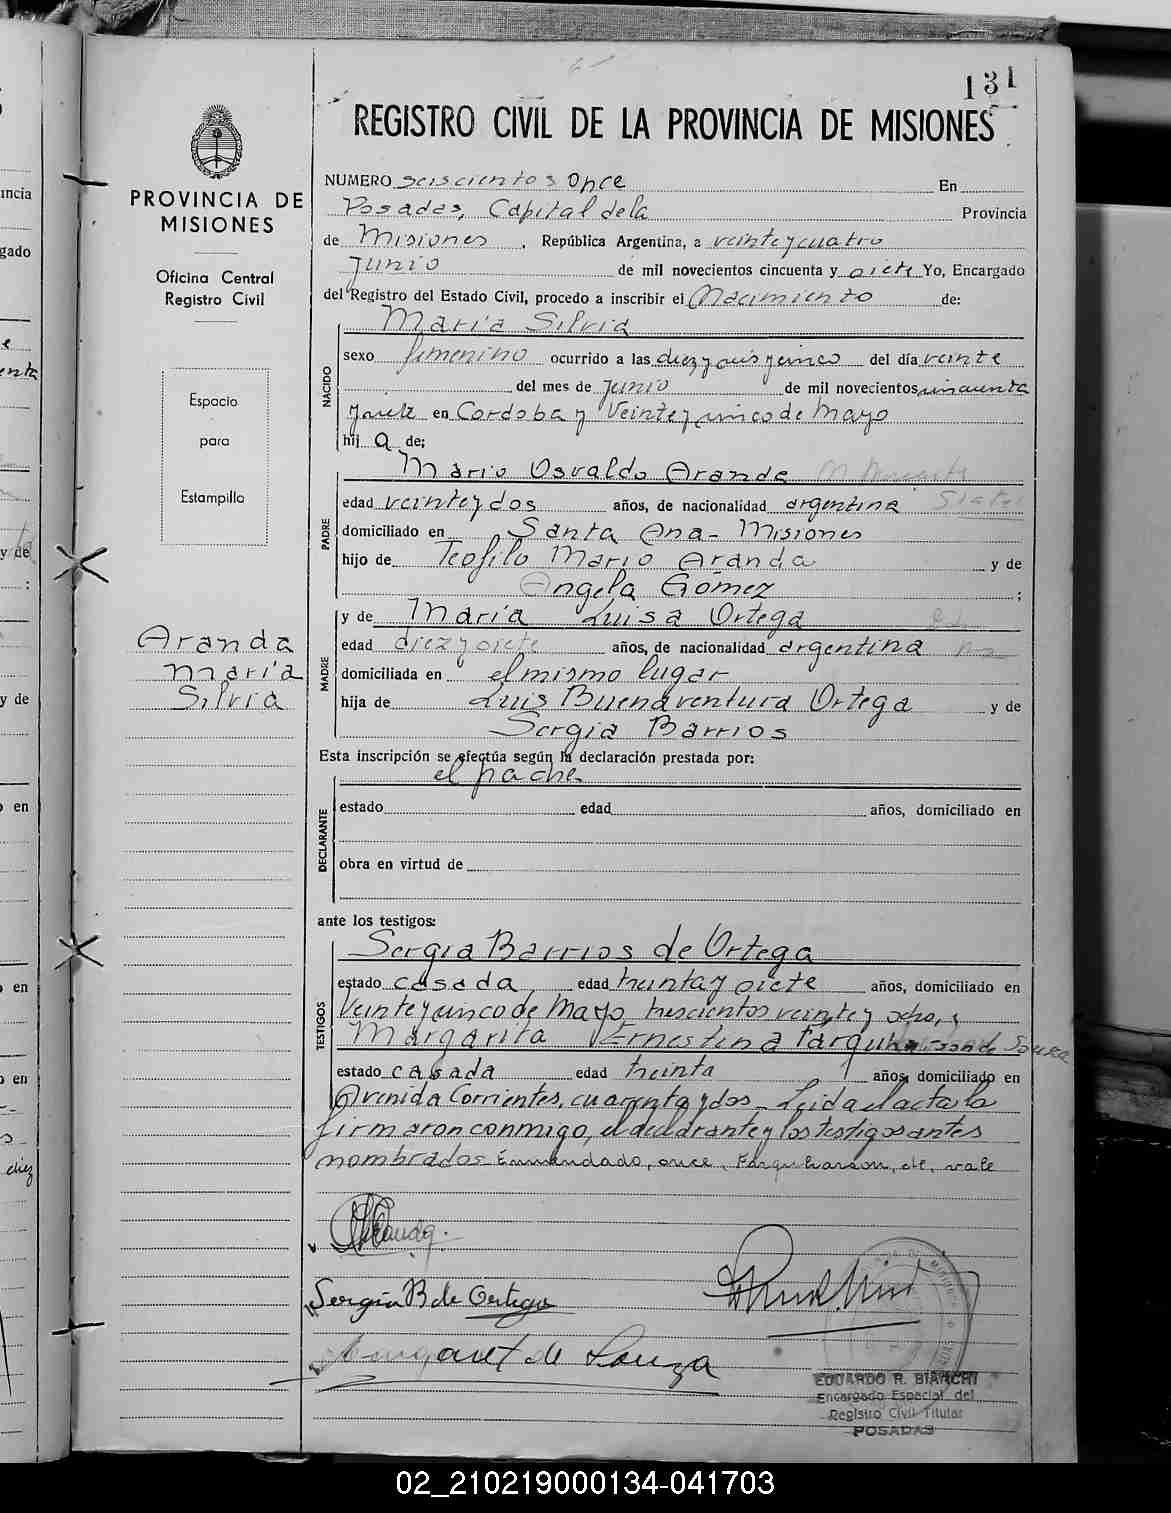 131
REGISTRO CIVIL DE LA PROVINCIA DE MISIONES
PROVINCIA DE
MISIONES
Oficina Central
Registro Civil
Espacio
para
Estampilla
Aranda
María
Silvia
NUMERO seiscientos once En
Posadas, Capital de la Provincia
de Misiones, República Argentina, a veinte y cuatro
Junio de mil novecientos cincuenta y siete Yo, Encargado
del Registro del Estado Civil, procedo a inscribir el Nacimiento de:
NACIDO
María Silvia
sexo femenino ocurrido a las diez y seis y cinco del día veinte
del mes de Junio de mil novecientos cincuenta
y siete en Córdoba y Veinte y cinco de Mayo
hij a de;
PADRE
Mario Osvaldo Aranda
edad veinte y dos años, de nacionalidad argentina
domiciliado en Santa Ana - Misiones
hijo de Teofilo Mario Aranda y de
Angela Gómez ;
MADRE
y de María Luisa Ortega
edad diez y siete años, de nacionalidad argentina
domiciliada en el mismo lugar
hija de Luis Buenaventura Ortega y de
Sergia Barrios
Esta inscripción se efectúa según la declaración prestada por:
DECLARANTE
el padre
estado edad años, domiciliado en
obra en virtud de
ante los testigos:
TESTIGOS
Sergia Barrios de Ortega
estado casada edad treinta y siete años, domiciliado en
Veinte y cinco de Mayo, trescientos veinte y ocho, y
Margarita Ernestina Farquharson de Souza
estado casada edad treinta años, domiciliado en
Avenida Corrientes, cuarenta y dos - Leida el acta la
firmaron conmigo, el declarante y los testigos antes
nombrados Enmendado, once, Farquharson, de, vale
Aranda
Sergia B de Ortega
Margaret de Souza
EDUARDO R. BIANCHI
Encargado Especial del
Registro Civil Titular
POSADAS
02_210219000134-041703